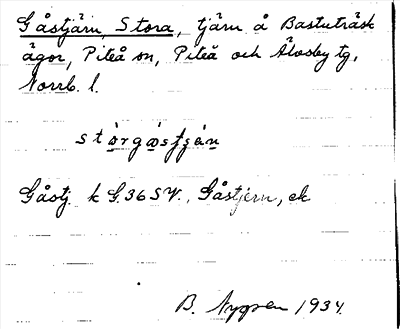 Gåstjärn, Stora, tjärn å Bastuträsk
ägor, Piteå sn, Piteå och Älvsby tg,
Norrb. l.
stòrgòstjän
Gåstj. k G.36 SV., Gåstjern, ek
B. Nygren 1934.